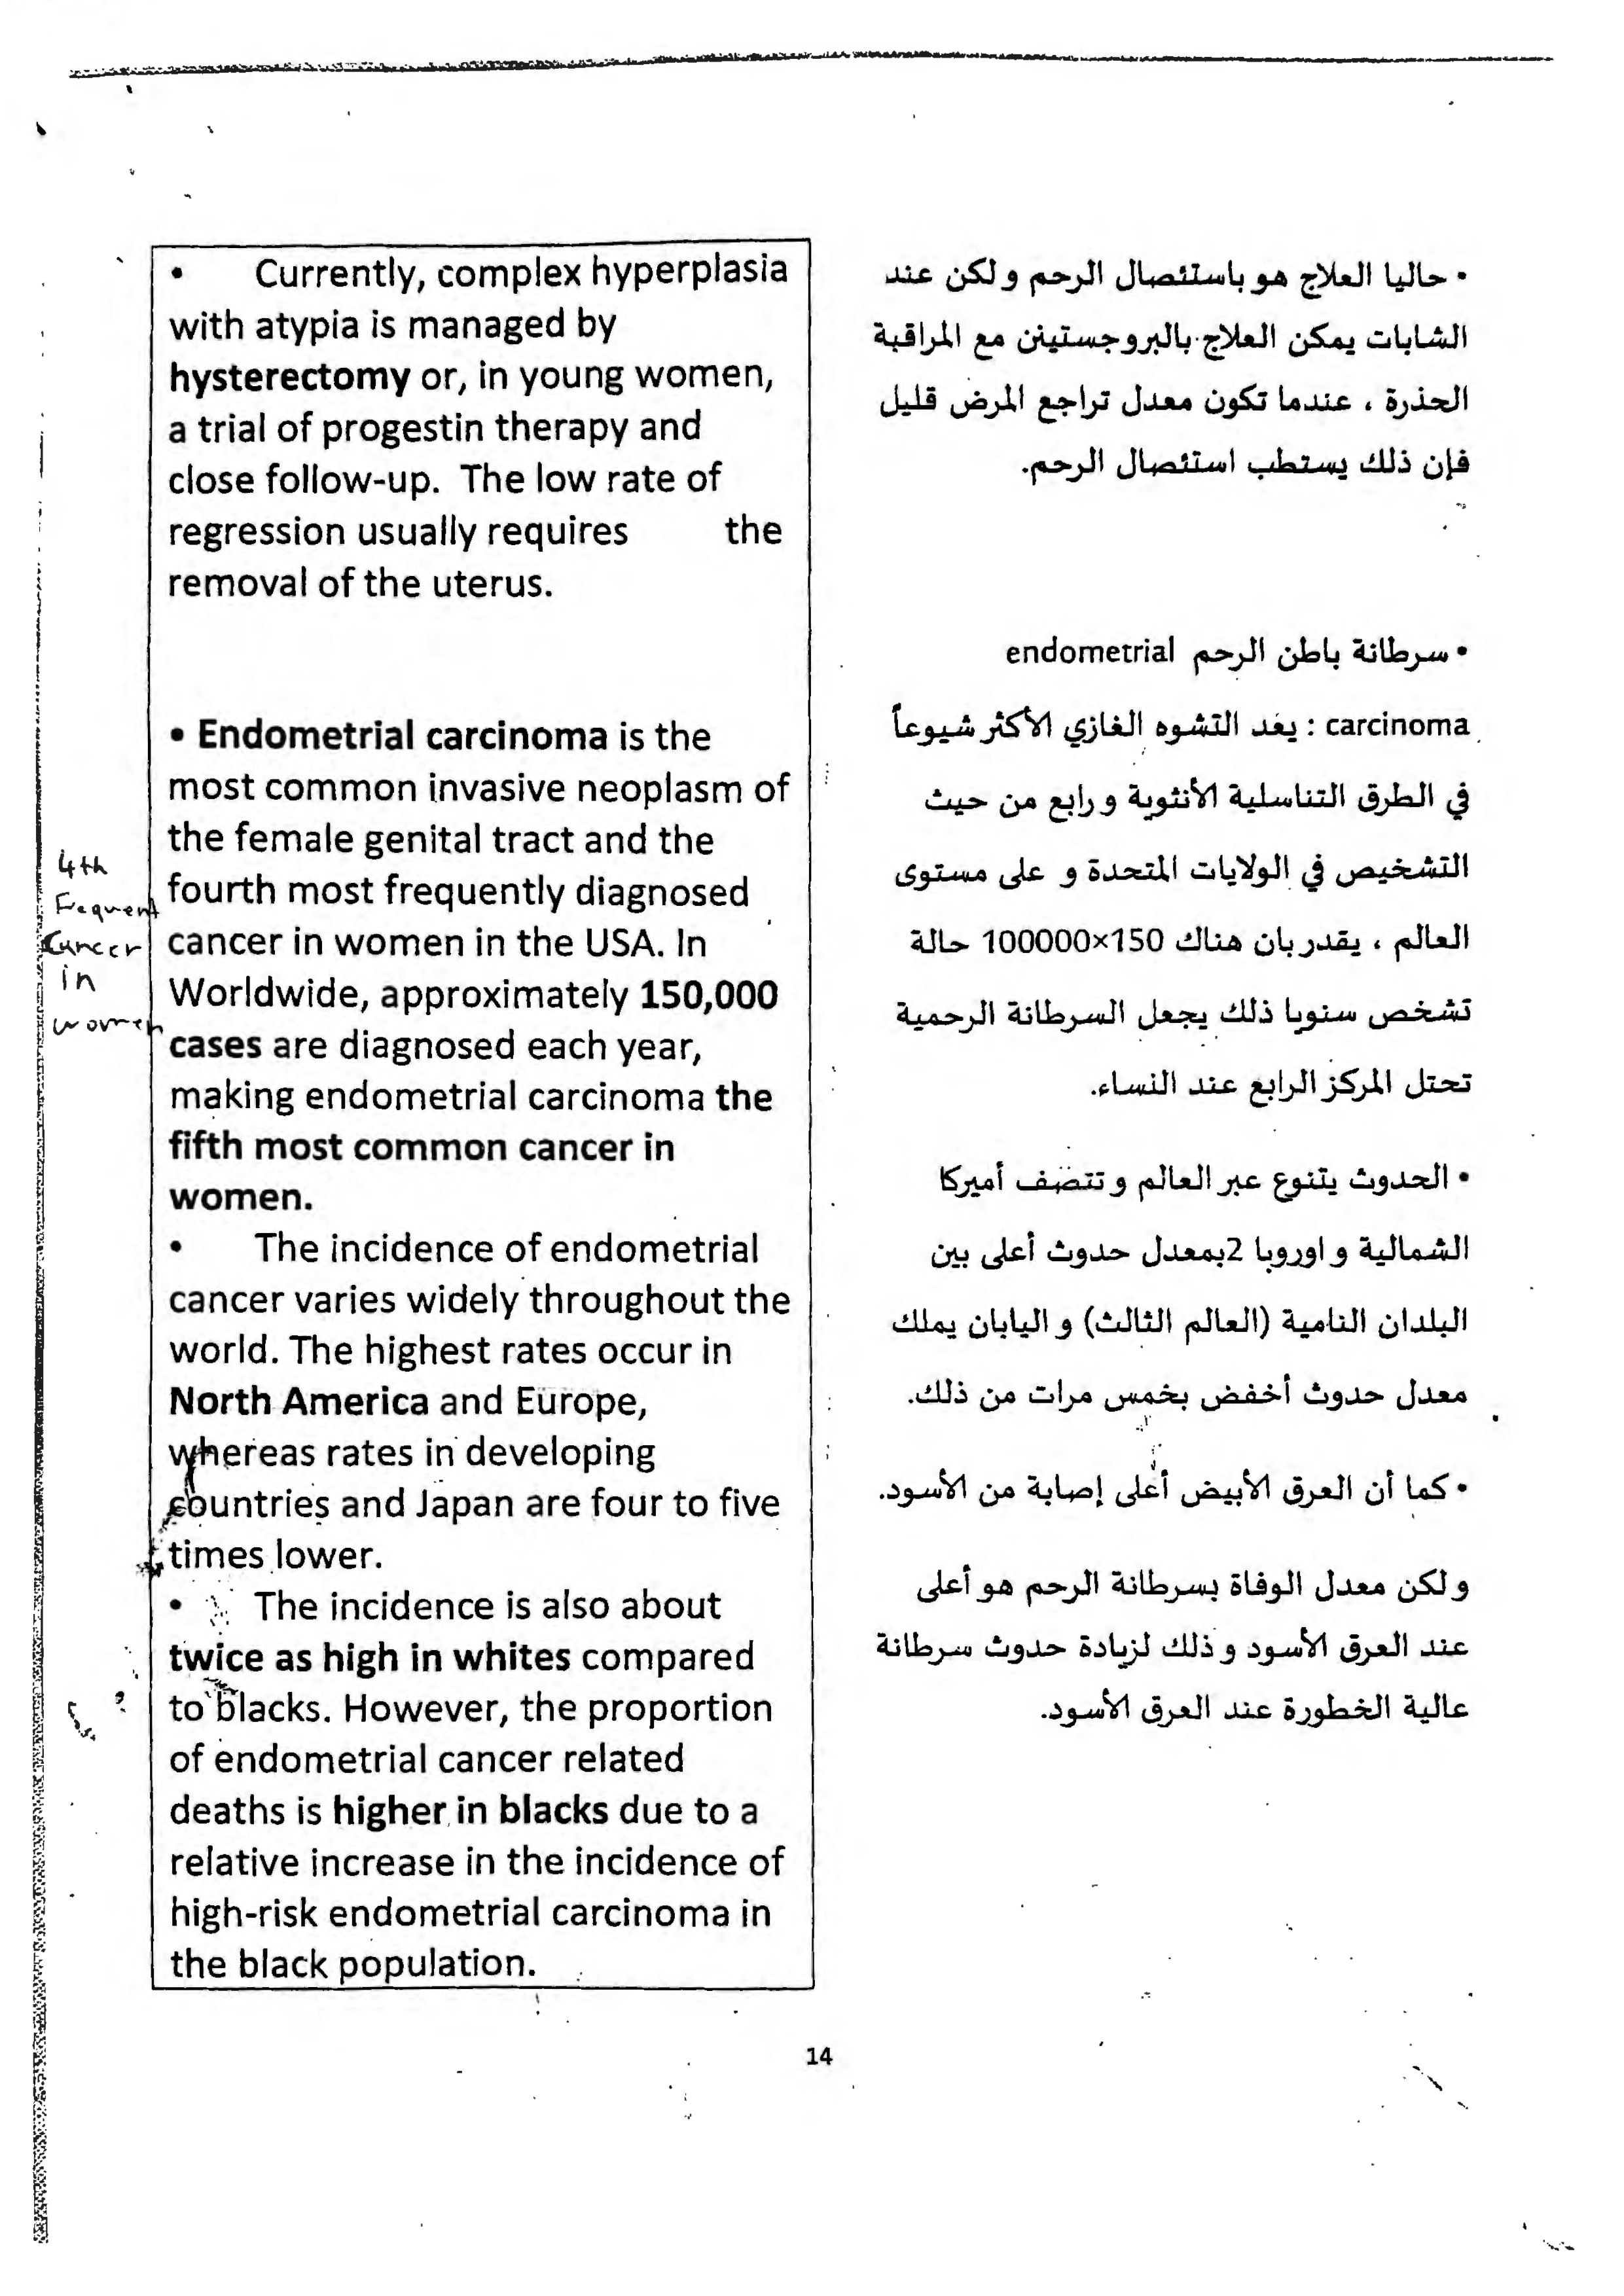 • Currently, complex hyperplasia
with atypia is managed by
hysterectomy or, in young women,
a trial of progestin therapy and
close follow-up. The low rate of
regression usually requires the
removal of the uterus.
• Endometrial carcinoma is the
most common invasive neoplasm of
the female genital tract and the
fourth most frequently diagnosed
cancer in women in the USA. In
Worldwide, approximately 150,000
cases are diagnosed each year,
making endometrial carcinoma the
fifth most common cancer in
women.
• The incidence of endometrial
cancer varies widely throughout the
world. The highest rates occur in
North America and Europe,
whereas rates in developing
countries and Japan are four to five
times lower.
• The incidence is also about
twice as high in whites compared
to blacks. However, the proportion
of endometrial cancer related
deaths is higher in blacks due to a
relative increase in the incidence of
high-risk endometrial carcinoma in
the black population.
4th
Frequent
Cancer
in
women
• حاليا العلاج هو باستئصال الرحم و لكن عند
الشابات يمكن العلاج بالبروجستينن مع المراقبة
الحذرة ، عندما تكون معدل تراجع المرض قليل
فإن ذلك يستطب استئصال الرحم.
• سرطانة باطن الرحم endometrial
carcinoma : يعد التشوه الغازي الأكثر شيوعاً
في الطرق التناسلية الأنثوية و رابع من حيث
التشخيص في الولايات المتحدة و على مستوى
العالم ، يقدر بان هناك 150×100000 حالة
تشخص سنويا ذلك يجعل السرطانة الرحمية
تحتل المركز الرابع عند النساء.
• الحدوث يتنوع عبر العالم و تتصف أميركا
الشمالية و اوروبا 2بمعدل حدوث أعلى بين
البلدان النامية (العالم الثالث) و اليابان يملك
معدل حدوث أخفض بخمس مرات من ذلك.
• كما أن العرق الأبيض أعلى إصابة من الأسود.
و لكن معدل الوفاة بسرطانة الرحم هو أعلى
عند العرق الأسود و ذلك لزيادة حدوث سرطانة
عالية الخطورة عند العرق الأسود.
14